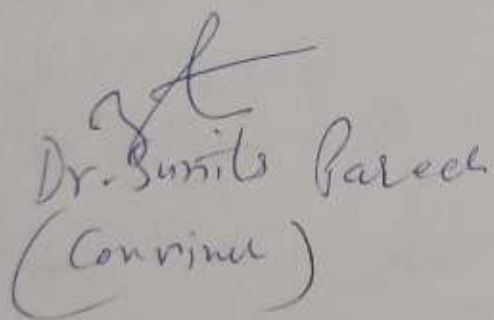 Dr. Sunita Pareek
(Conviner)